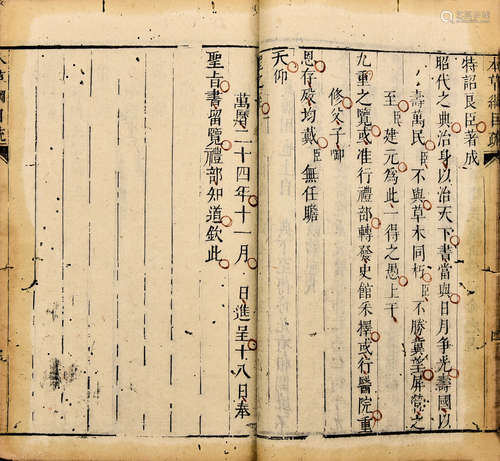 本草綱目疏
特詔良臣著成
昭代之典治身以治天下書當與日月爭光壽國以
壽萬民臣不與草木同朽臣不勝冀望屏營之
至臣建元爲此一得之愚上干
九重之覽或准行禮部轉發史館采擇或行醫院重
修父子啣
恩存歿均戴臣無任瞻
天仰
聖之至
萬曆二十四年十一月 日進呈十八日奉
聖旨書留覽禮部知道欽此
本草綱目疏